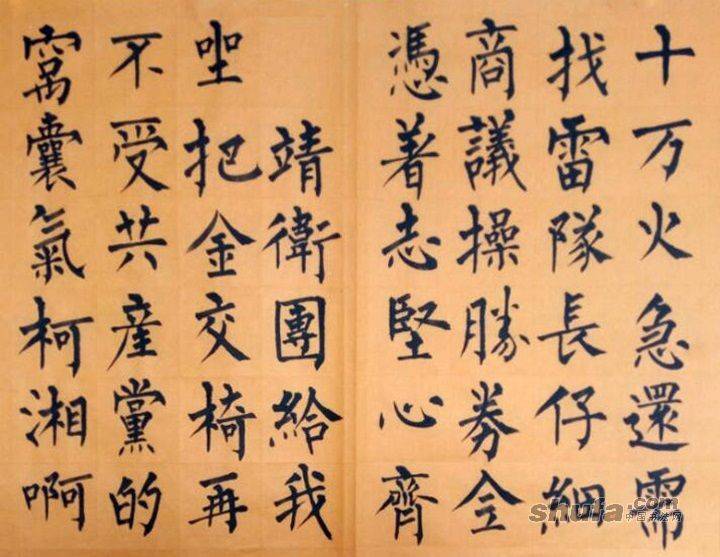 十万火急還需
找雷隊長仔細
商議操勝券今
憑著志堅心齊
靖衛團給我
坐把金交椅再
不受共産黨的
窩囊氣柯湘啊
shufa.com
中国书法网